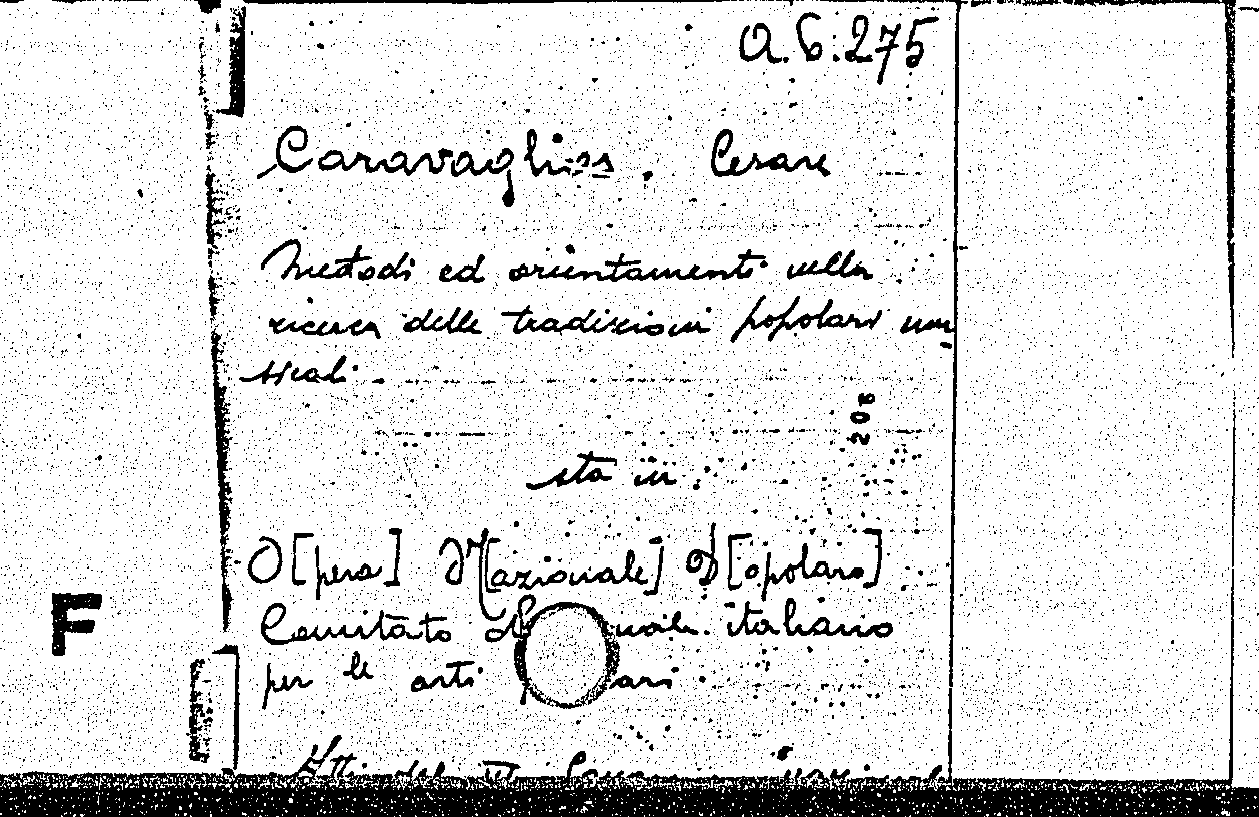 O.6.275
Caravaglios. Cesare
Metodi ed orientamenti nella
ricerca delle tradizioni popolari mu
sicali.
208
sta in:
O[pera] N[azionale] D[opolavo]
Comitato italiano
per le arti
F
Atti del